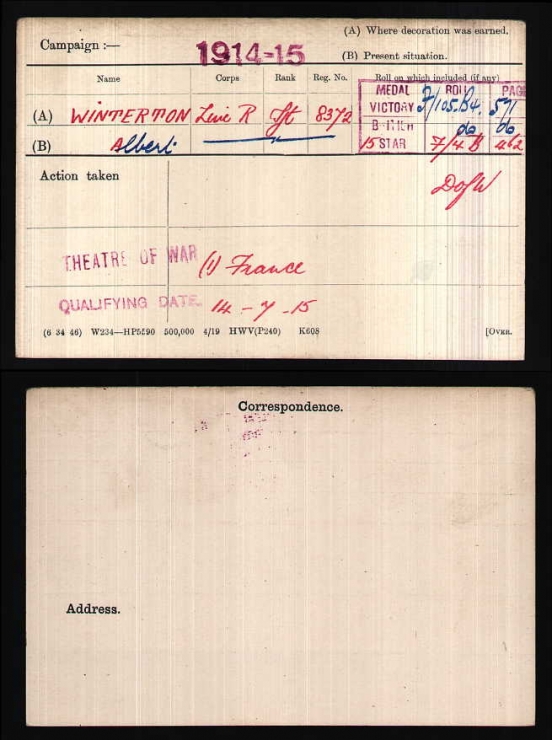 (A) Where decoration was earned.
Campaign :—
1914-15
(B) Present situation.
Name Corps Rank Reg. No. Roll on which included (if any)
MEDAL ROLL PAGE
(A) WINTERTON Linc R Sjt 8372 VICTORY 571
do do
(B) Albert 15 STAR 7/4 B 462
Action taken
DofW
THEATRE OF WAR (1) France
QUALIFYING DATE. 14 - 7 - 15
(6 34 46) W234—HP5590 500,000 4/19 HWV(P240) K608 [OVER.
Correspondence.
Address.